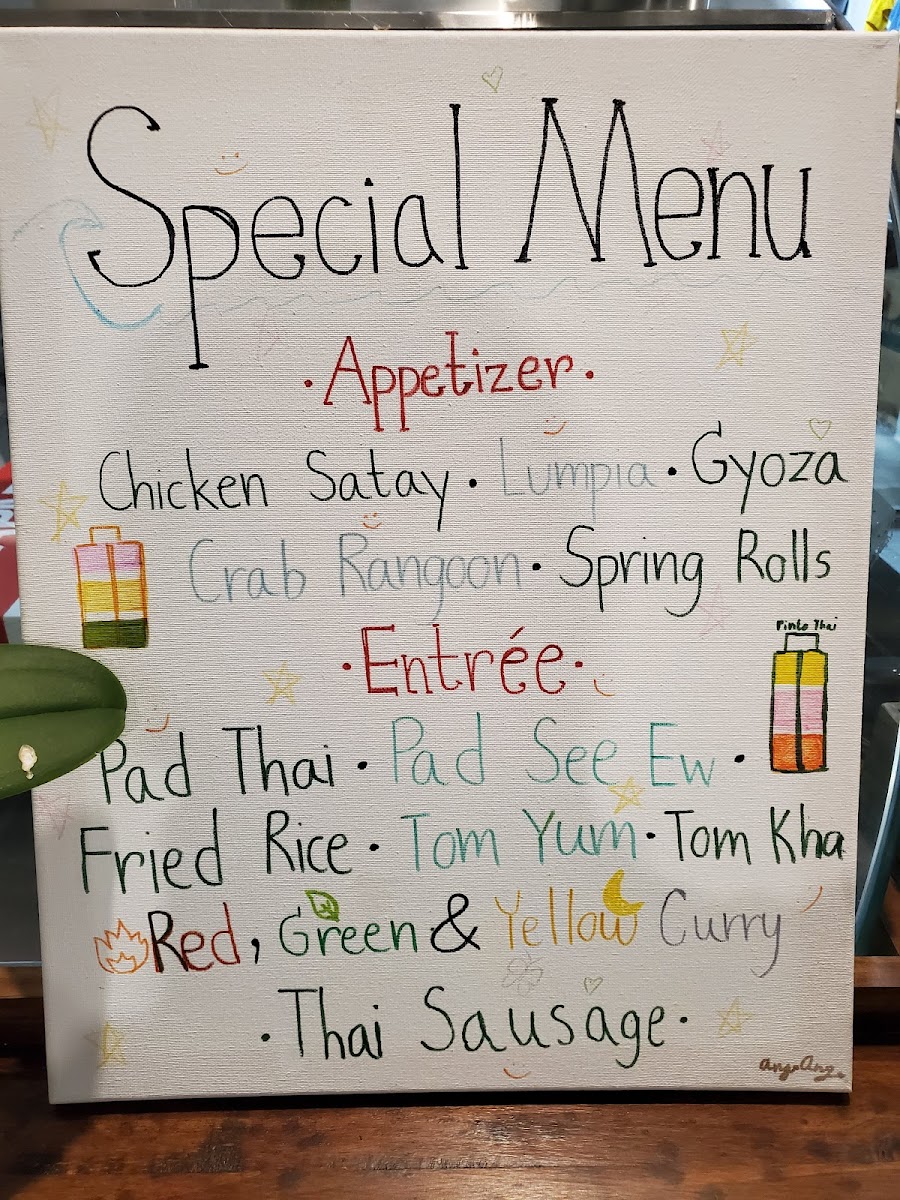 Special Menu
· Appetizer ·
Chicken Satay · Lumpia · Gyoza
Crab Rangoon · Spring Rolls
· Entrée ·
Pinto Thai
Pad Thai · Pad See Ew ·
Fried Rice · Tom Yum · Tom Kha
Red, Green & Yellow Curry
· Thai Sausage ·